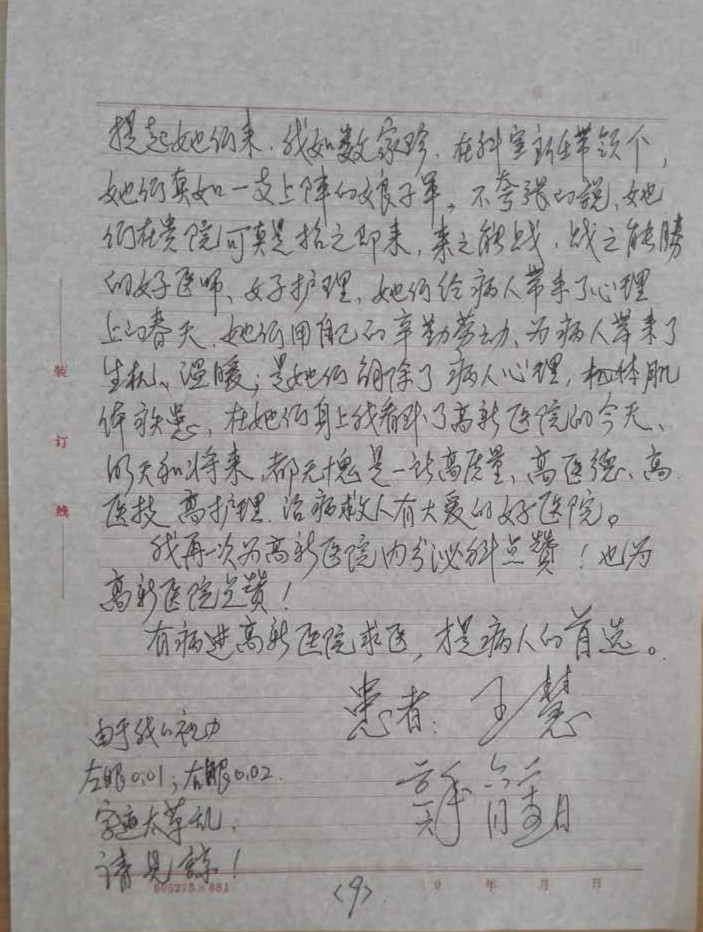 提起她们来，我如数家珍。在科室主任带领下，
她们真如一支上阵的娘子军。不夸张的説，她
们在贵院可真是招之即来，来之能战，战之能勝
的好医师、好护理，她们给病人带来了心理
上的春天，她们用自己的辛勤劳动，为病人带来了
生机、温暖；是她们解除了病人心理，肌
体疾患，在她们身上我看到了高新医院的今天、
明天和将来，都无愧是一所高质量、高医德、高
医技、高护理、治病救人有大爱的好医院。
我再一次为高新医院内分泌科点赞！也为
高新医院点赞！
有病进高新医院求医，才是病人的首选。
患者：王慧
由于我的视力
左眼0.01；右眼0.02.
字迹太草乱，
请见谅！
装
订
线
年 月 日
〈9〉